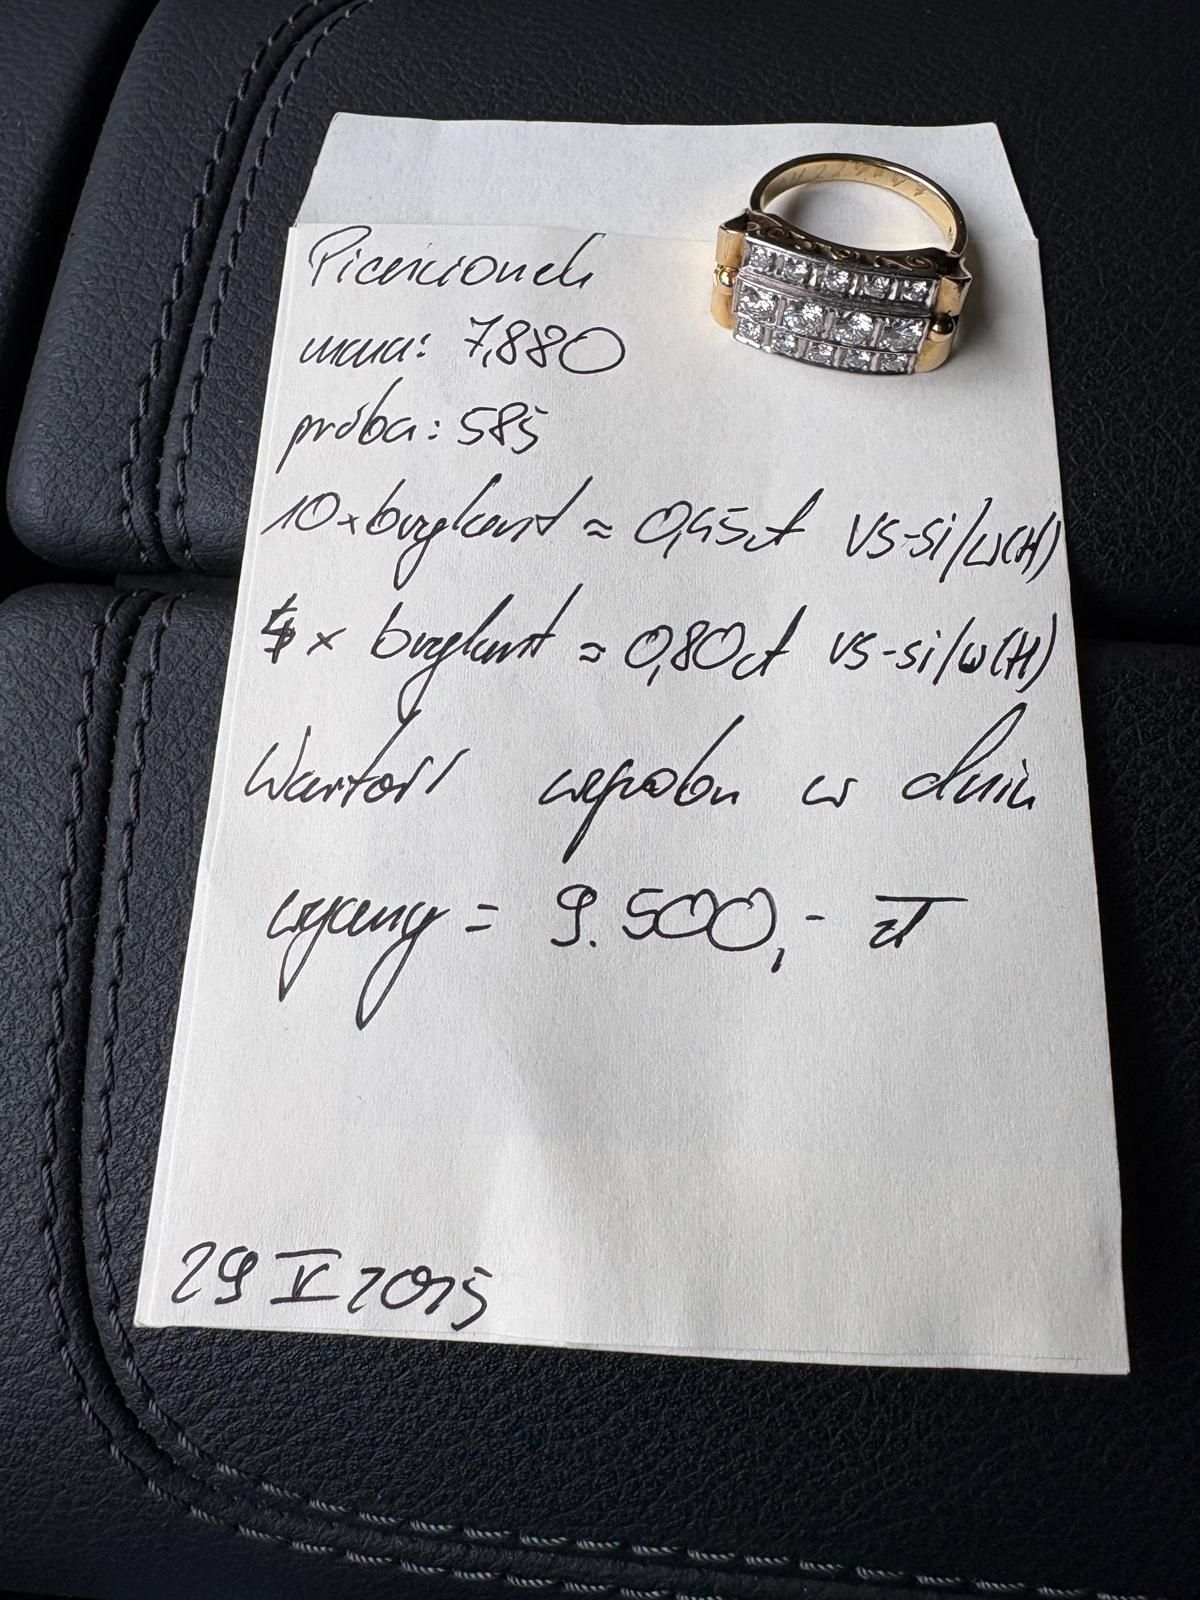 Pierścionek
masa: 7,880
próba: 585
10 x brylant ≈ 0,45ct VS-Si/W(H)
4 x brylant ≈ 0,80ct VS-Si/W(H)
Wartość wyrobu w dniu
wyceny = 9.500,- zł
29 V 2015